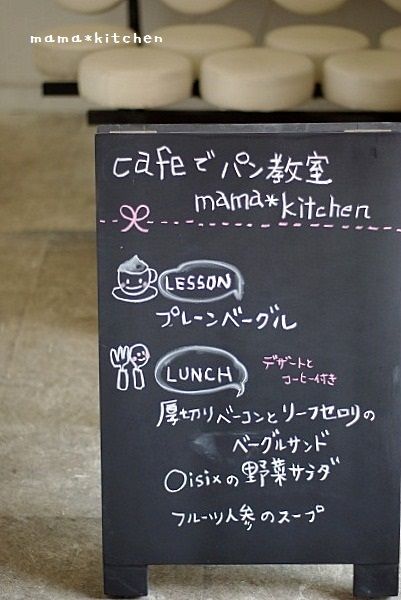 mama*kitchen
cafeでパン教室
mama*kitchen
LESSON
プレーンベーグル
LUNCH
デザートと
コーヒー付き
厚切りベーコンとリーフセロリの
ベーグルサンド
Oisixの野菜サラダ
フルーツ人参のスープ